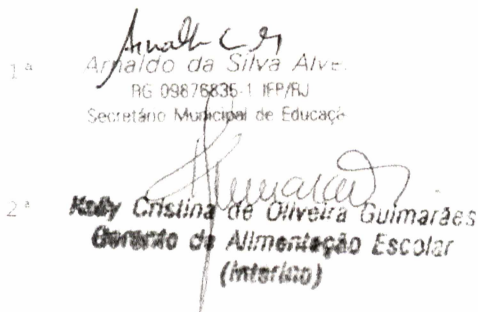 1ª Arnaldo da Silva Alve
RG 09876835-1 IFP/RJ
Secretário Municipal de Educaçã
2ª Kelly Cristina de Oliveira Guimarães
Gerente de Alimentação Escolar
(interino)